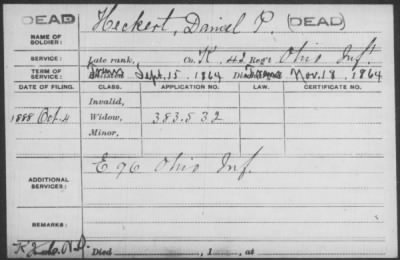 DEAD
Heckert, Daniel P. (DEAD)
NAME OF SOLDIER:
SERVICE: Late rank, Co. K, 42 Reg't Ohio Inf.
TERM OF SERVICE: Enlisted Sept. 15, 1864 Discharged Nov. 18, 1864
DATE OF FILING. CLASS. APPLICATION NO. LAW. CERTIFICATE NO.
Invalid,
1888 Oct. 4 Widow, 383.532
Minor,
ADDITIONAL SERVICES: E 96 Ohio Inf.
REMARKS:
Died , 1 , at